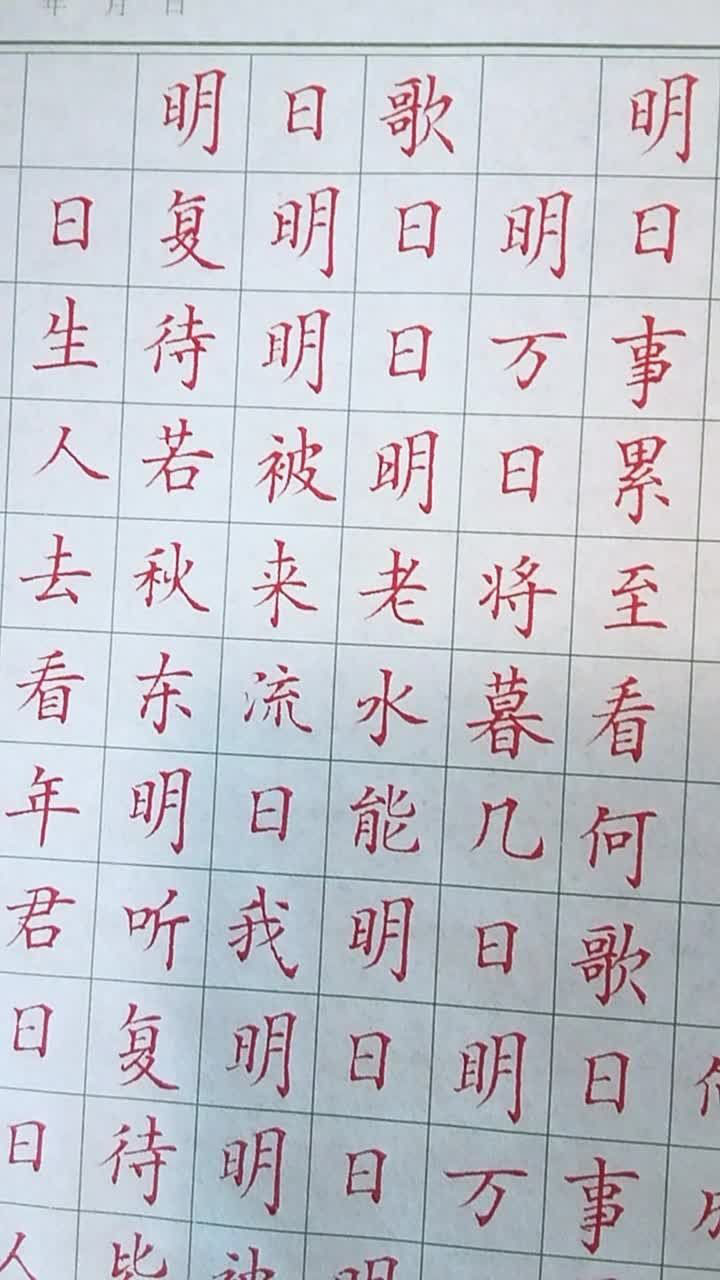 年 月 日
明日歌 明
日复明日明日
生待明日万事
人若被明日累
去秋来老将至
看东流水暮看
年明日能几何
君听我明日歌
日复明日明日
日待明日万事
人皆被明